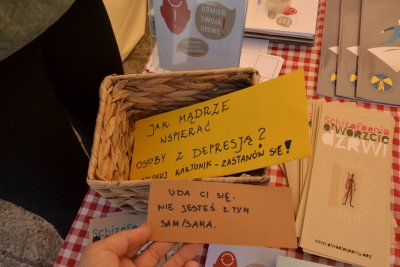 ODMIEŃ
SWOJĄ
GŁOWĘ
JAK MĄDRZE
WSPIERAĆ
OSOBY Z DEPRESJĄ?
WYLOSUJ KARTONIK - ZASTANÓW SIĘ!
UDA CI SIĘ.
NIE JESTEŚ Z TYM
SAM/SAMA.
Schizofrenia
OTWÓRZCIE
DRZWI